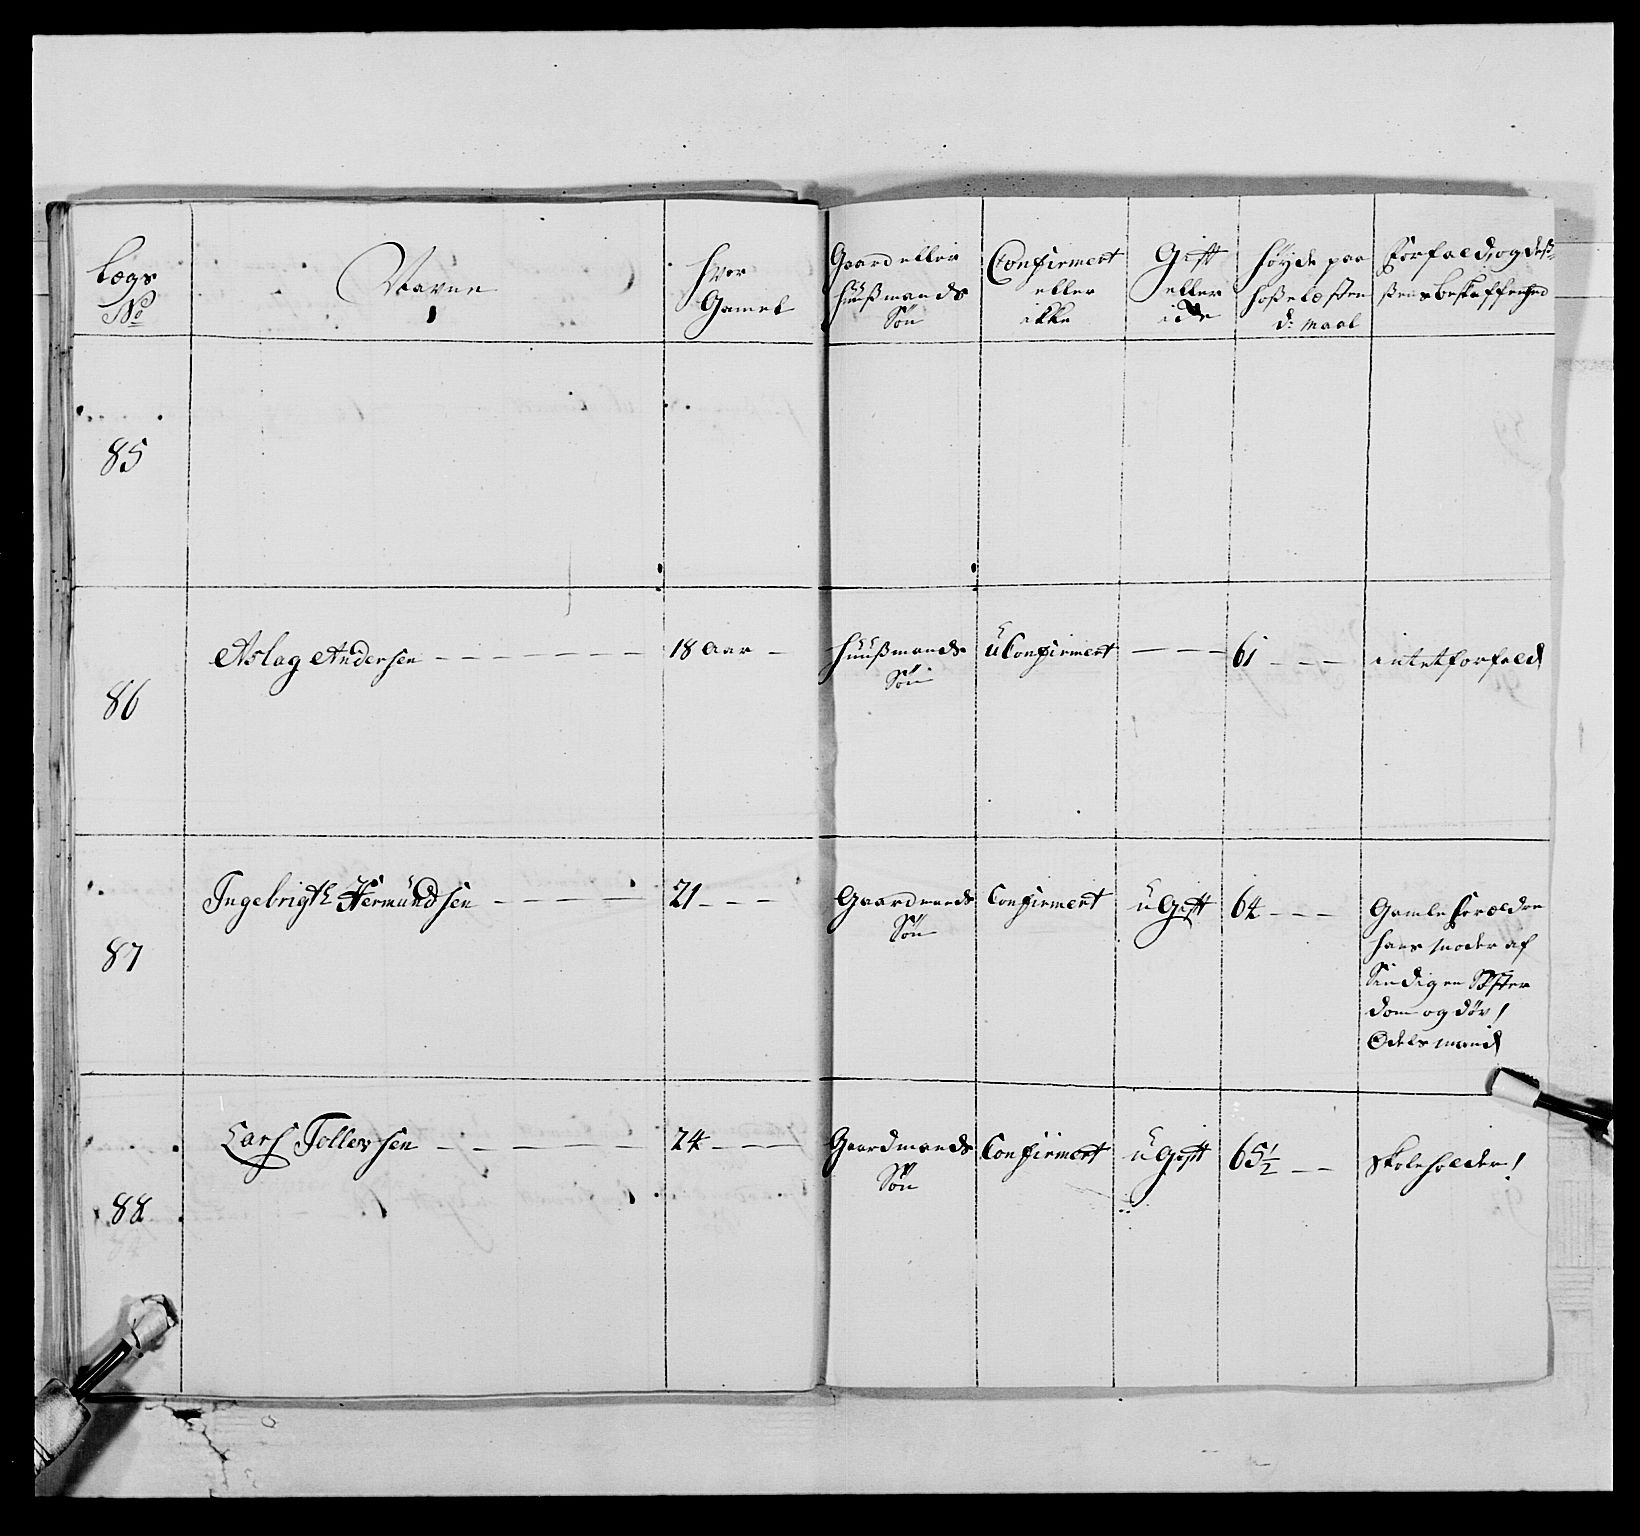 Lægs
No
Navne
hvor
Gamel
Gaard eller
huußmands
Søn
Confirmert
eller
ikke
Gift
eller
Høyde paa
d: maal
Forfald, og deß-
85
86
Aslag Andersen
18 Aar
Huußmands
Søn
uConfirmert
61
intet forfald
87
Ingebrigth Hermundsen
21
Gaardmands
Søn
Confirmert
uGift
64
Gamle Forældre
hans moder af
Sindig en Søster
dom og døv!
Odelsmand
88
Lars Tollevsen
24
Gaardmands
Søn
Confirmert
uGift
65½
Skoleholder!